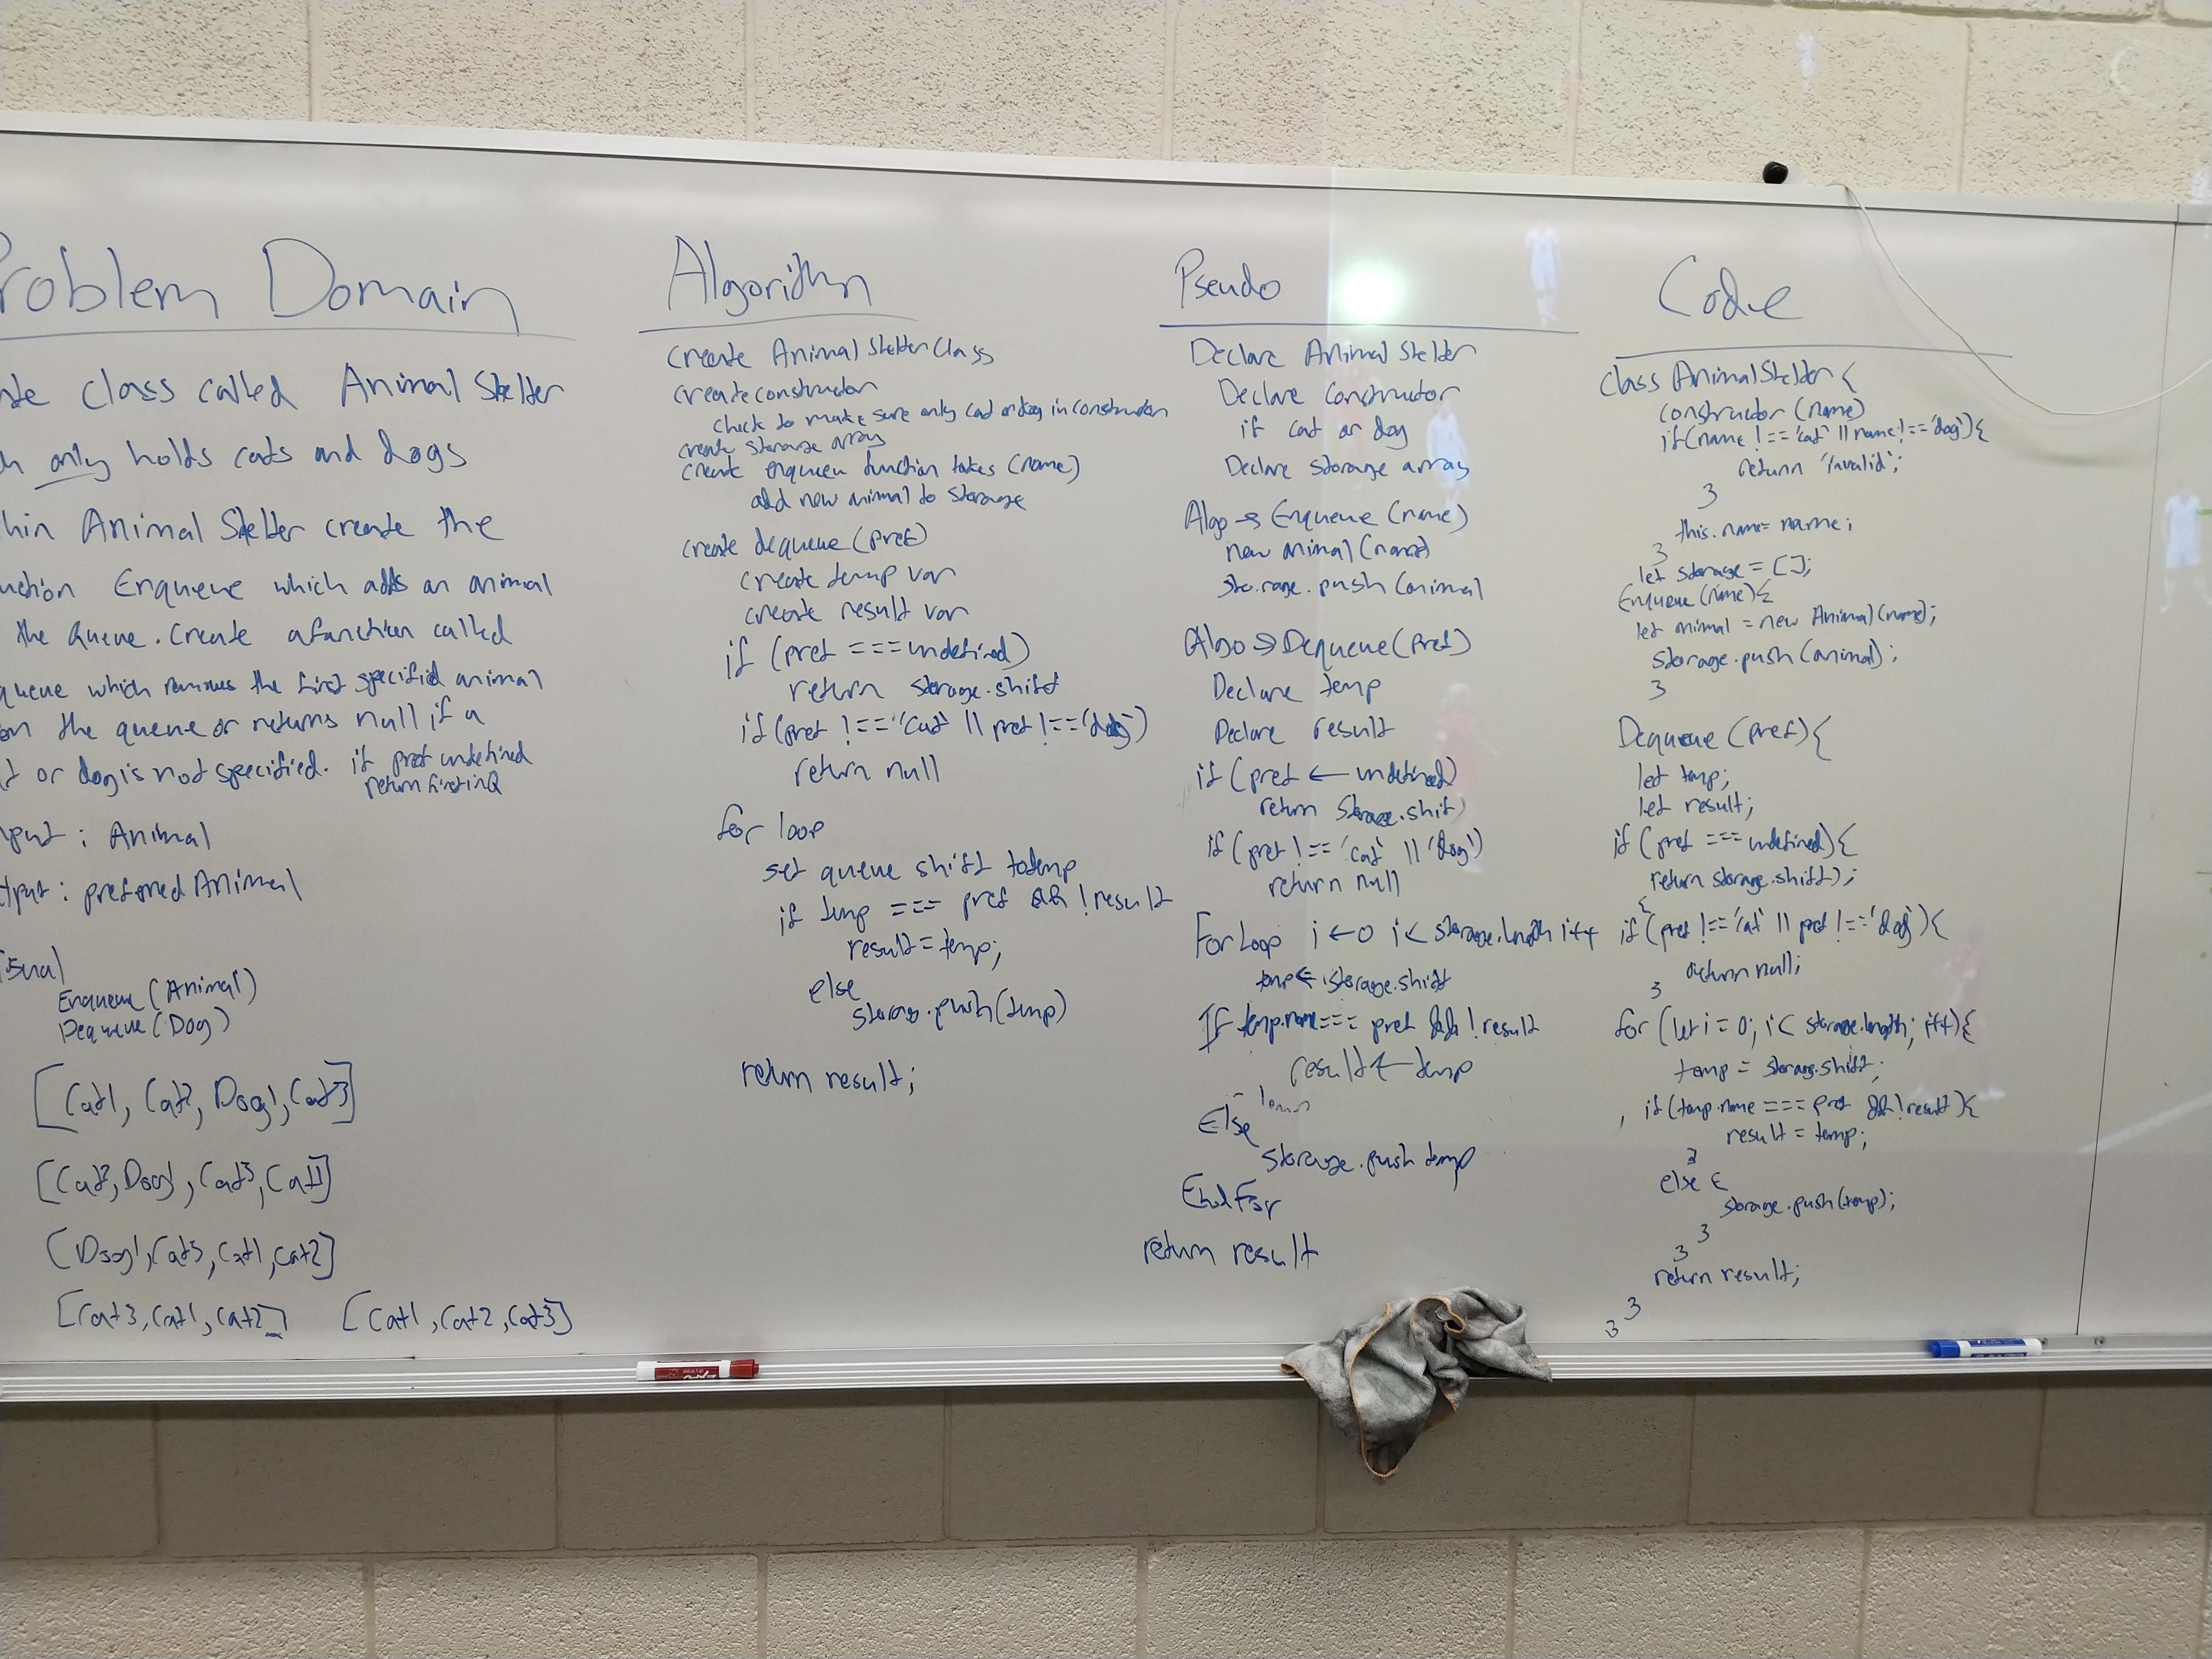 Problem Domain
class called Animal Shelter
only holds cats and dogs
Animal Shelter create the
Enqueue which adds an animal
the Queue. Create a function called
which removes the first specified animal
the queue or returns null if a
or dog is not specified. if pref undefined
return first in Q
: Animal
: preferred Animal
Enqueue (Animal)
Dequeue (Dog)
[Cat1, Cat2, Dog1, Cat3]
[Cat2, Dog1, Cat3, Cat1]
[Dog1, Cat3, Cat1, Cat2]
[Cat3, Cat1, Cat2] [Cat1, Cat2, Cat3]
Algorithm
create Animal Shelter Class
create constructor
check to make sure only cat or dog in constructor
create storage array
create enqueue function takes (name)
add new animal to storage
create dequeue (pref)
create temp var
create result var
if (pref === undefined)
return storage.shift
if (pref !== 'cat' || pref !== 'dog')
return null
for loop
set queue shift to temp
if temp === pref && !result
result = temp;
else
storage.push(temp)
return result;
Pseudo
Declare Animal Shelter
Declare Constructor
if cat or dog
Declare storage array
Algo → Enqueue (name)
new animal (name)
storage.push (animal
Algo → Dequeue (Pref)
Declare temp
Declare result
if (pref ← undefined)
return storage.shift
if (pref !== 'cat' || 'dog')
return null
For Loop i ← 0 i < storage.length i++
temp ← storage.shift
If temp.name === pref && !result
result ← temp
Else
storage.push temp
End For
return result
Code
class AnimalShelter {
constructor (name)
if (name !== 'cat' || name !== 'dog') {
return 'invalid';
}
this.name = name;
}
let storage = [];
Enqueue (name) {
let animal = new Animal (name);
storage.push (animal);
}
Dequeue (pref) {
let temp;
let result;
if (pref === undefined) {
return storage.shift);
}
if (pref !== 'cat' || pref !== 'dog') {
return null;
}
for (let i = 0; i < storage.length; i++) {
temp = storage.shift;
if (temp.name === pref && !result) {
result = temp;
}
else {
storage.push (temp);
}
}
return result;
}
}